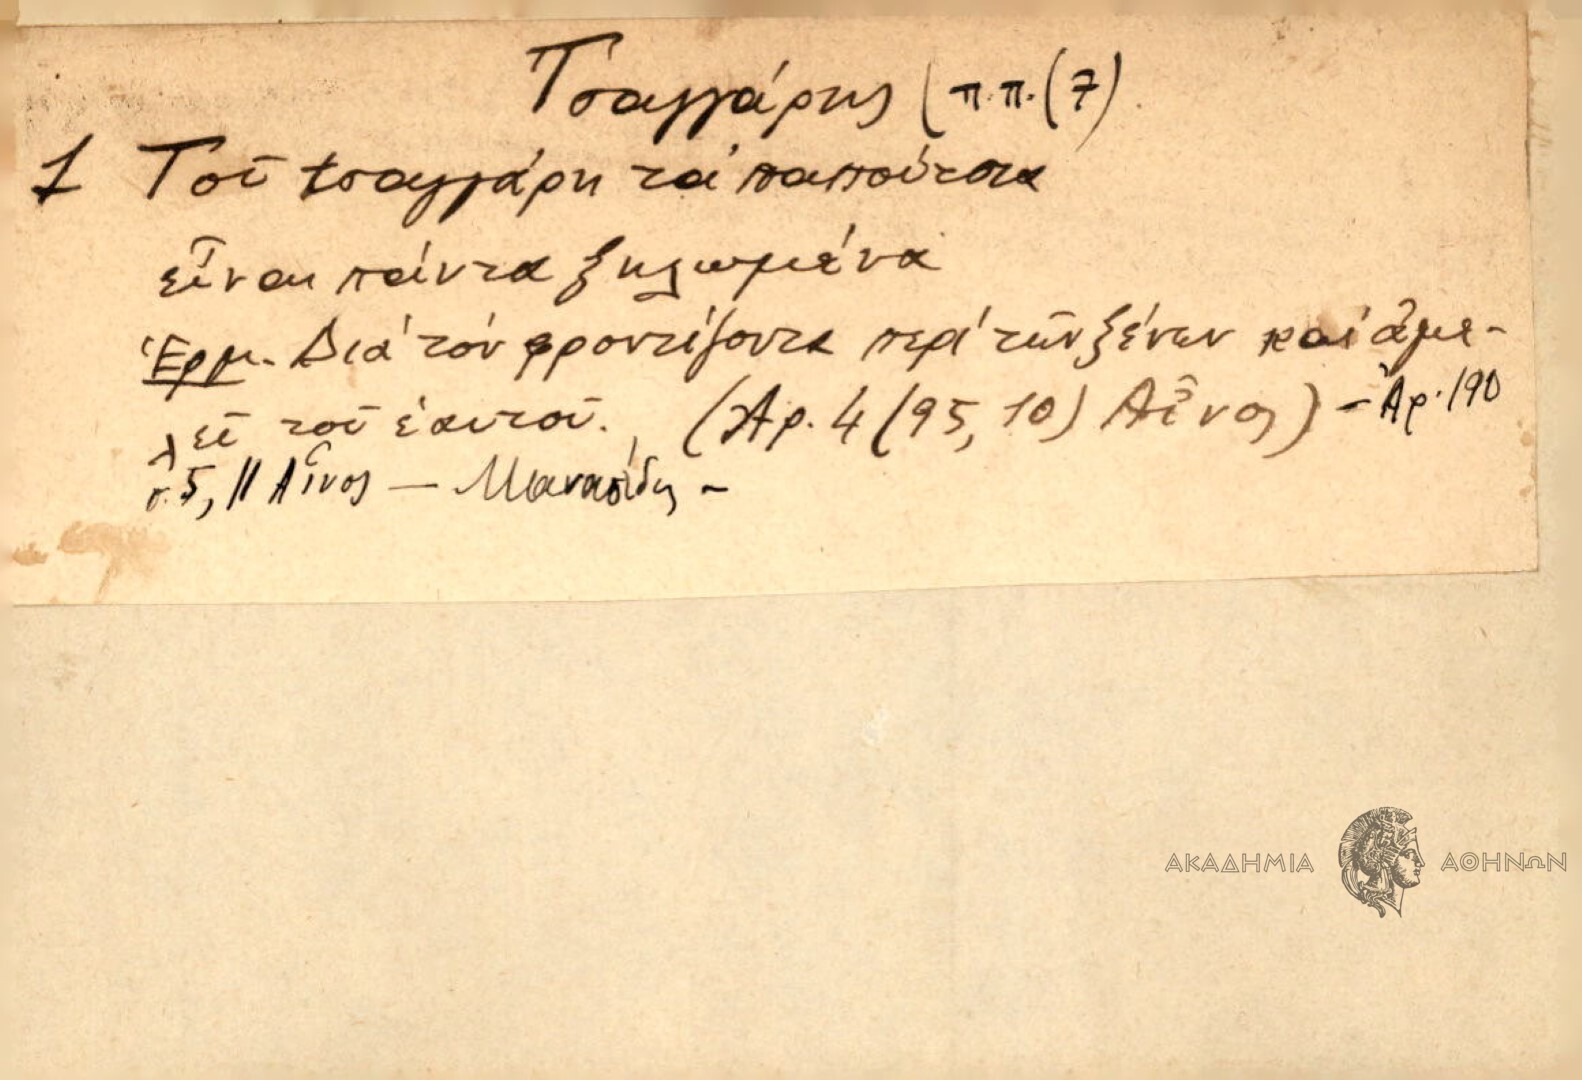 Τσαγγάρης (π.π. (7)
1 Τοῦ τσαγγάρη τά παπούτσια
εἶναι πάντα ξηλωμένα
Ἑρμ. Διά τόν φροντίζοντα περί τῶν ξένων καί ἀμε-
λεῖ τοῦ ἑαυτοῦ. (Ἀρ. 4 (95, 10) Αἶνος) - Ἀρ. 190
σ. 5, 11 Αἶνος — Μανασίδης -
ΑΚΑΔΗΜΙΑ ΑΘΗΝΩΝ